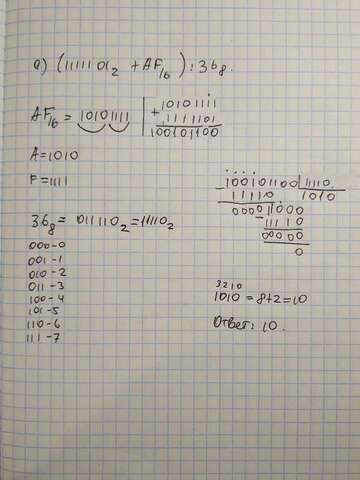 а) (1111101₂ + AF₁₆) : 36₈.
AF₁₆ = 10101111
+ 10101111
1111101
100101100
A = 1010
F = 1111
36₈ = 011110₂ = 11110₂
000 - 0
001 - 1
010 - 2
011 - 3
100 - 4
101 - 5
110 - 6
111 - 7
100101100 | 11110
- 11110 | 1010
00001000
- 11110
00000
0
3 2 1 0
1010 = 8+2 = 10
Ответ: 10.